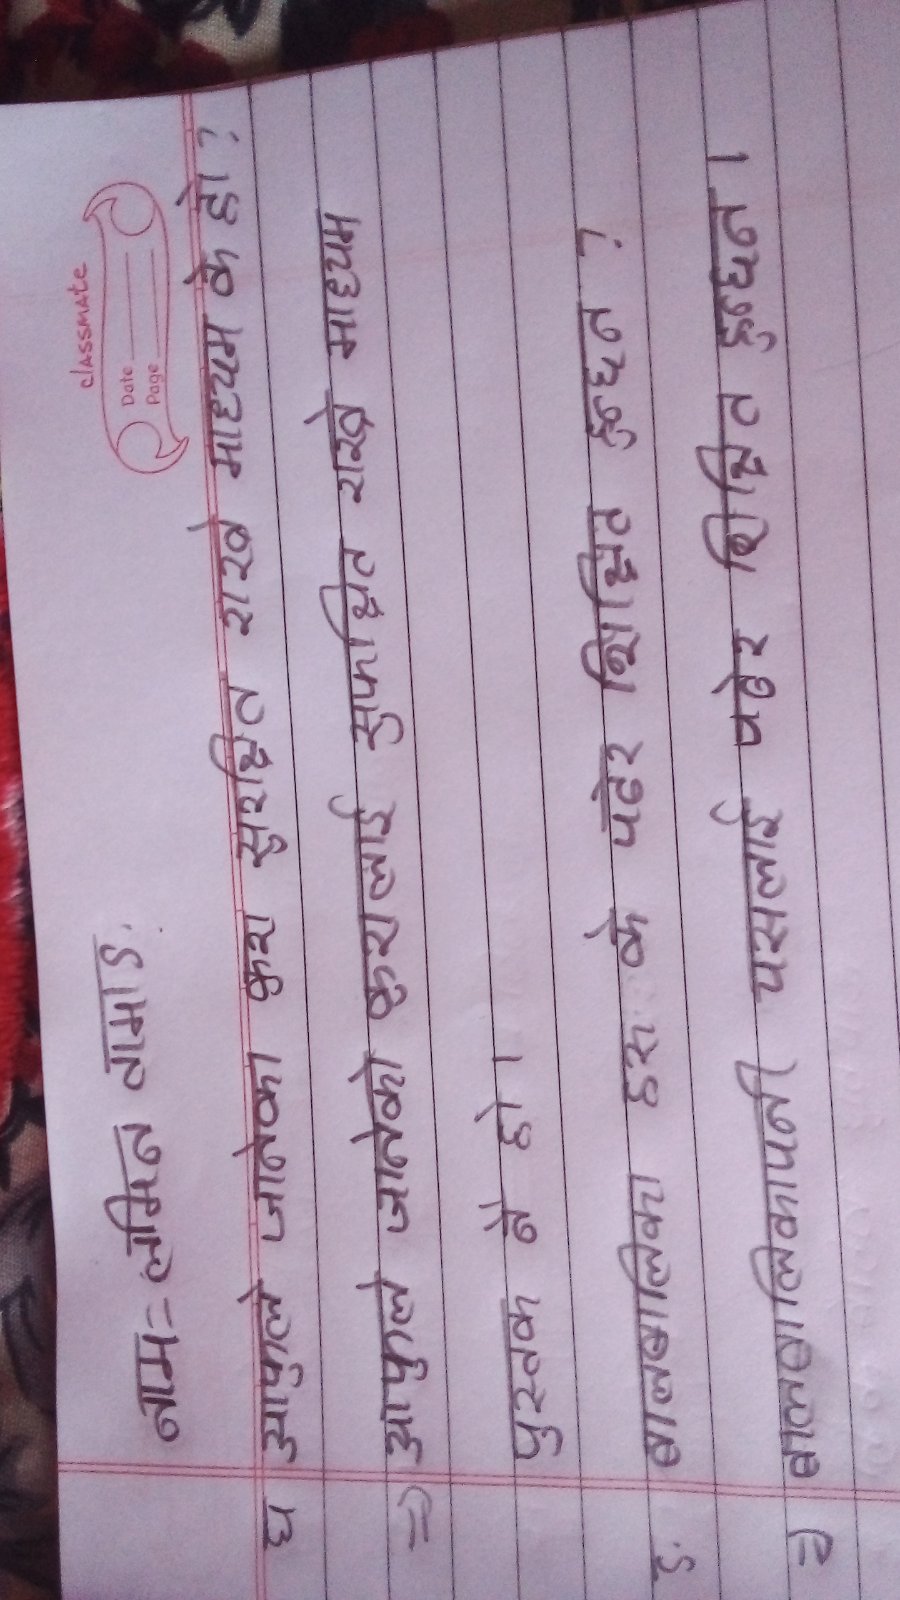 classmate
Date
Page
नाम:- लमित लामाड.
घ आफुले जानेका कुरा सुरक्षित राख्ने माध्यम के हो ?
⇒ आफुले जानेको कुरालाई सुरक्षित राख्ने माध्यम
पुस्तक नै हो ।
ड. बालबालिका हरू के पढेर शिक्षित हुन्छन ?
⇒ बालबालिका पुस्तलाई पढेर शिक्षित हुन्छन ।